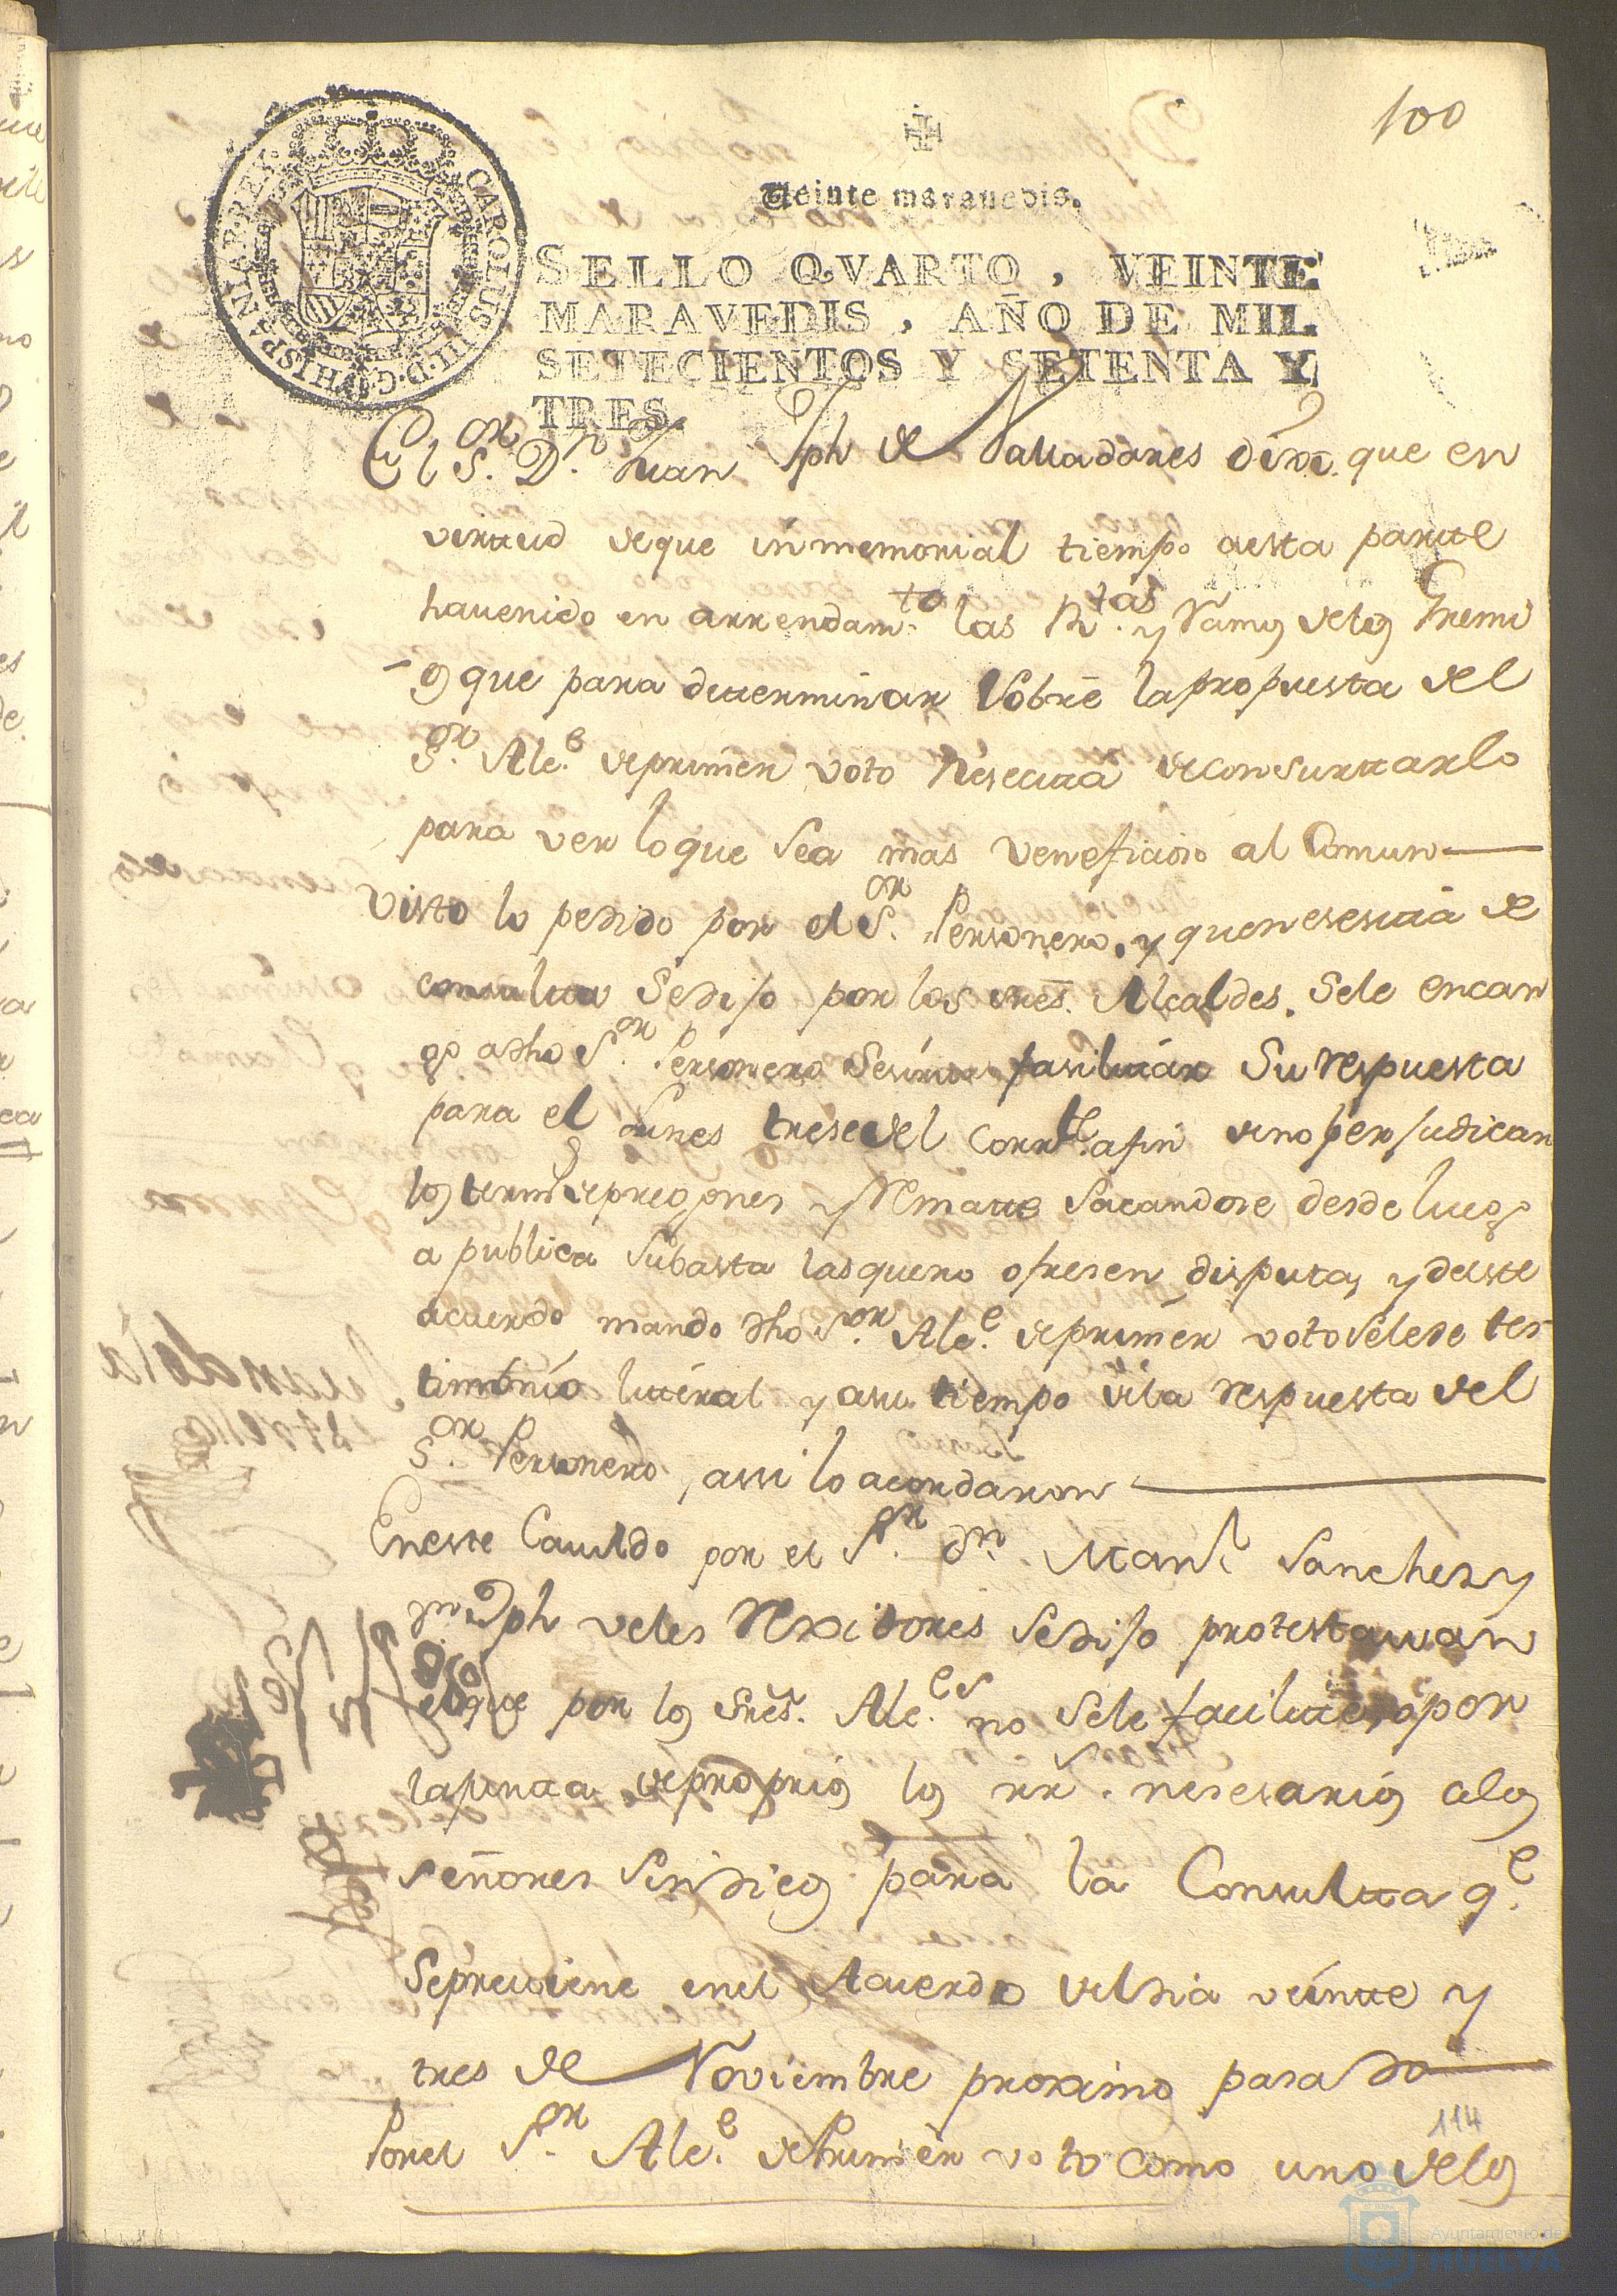 100
Veinte maravedis.
CAROLUS III D.G. HISPANIAR. REX
SELLO QVARTO, VEINTE
MARAVEDIS, AÑO DE MIL
SETECIENTOS Y SETENTA Y
TRES.
El S.or D.n Juan Jph de Valladares dixo que en
virttud de que inmemorial tiempo aesta partte
havenido en arrendam.to las R.tas y Ramos delos Gremi
-os que para dettermiñar sobre la propuesta del
S.or Alc.e deprimer voto nesecitta deconsurttarlo
para ver loque sea mas veneficioso al Comun
Visto lo pedido por el S.or Personero, y quenesesitta de
consultta Sedijo por los sres. Alcaldes. Sele encar
go adho S.or Personero fasilittar Su respuesta
para el Lunes trese del Corr.te afin deno perjudicar
los term.s depregones y Rematte sacandose desde luego
a publica Subasta las queno ofresen disputa, y deeste
acuerdo mando dho S.or Alc.e deprimer voto sele de tes
timonio litteral y asu tiempo dela respuesta del
S.or Personero, assi lo acordaron
Eneste Cauildo por el S.or D.n Man.l Sanchez y
D.n Jph veles Rexidores Sedijo protestauan
el que por los Sres. Alc.es no sele facilitte, o por
lajuntta deproprios los rr.s nesesarios alos
señores Sindicos para la Consultta q.e
Sepreviene enel Acuerdo deldia veintte y
tres de Noviembre proximo pasado
Porel S.or Alc.e dePrimer voto como uno delos
114
Ayuntamiento de
HUELVA